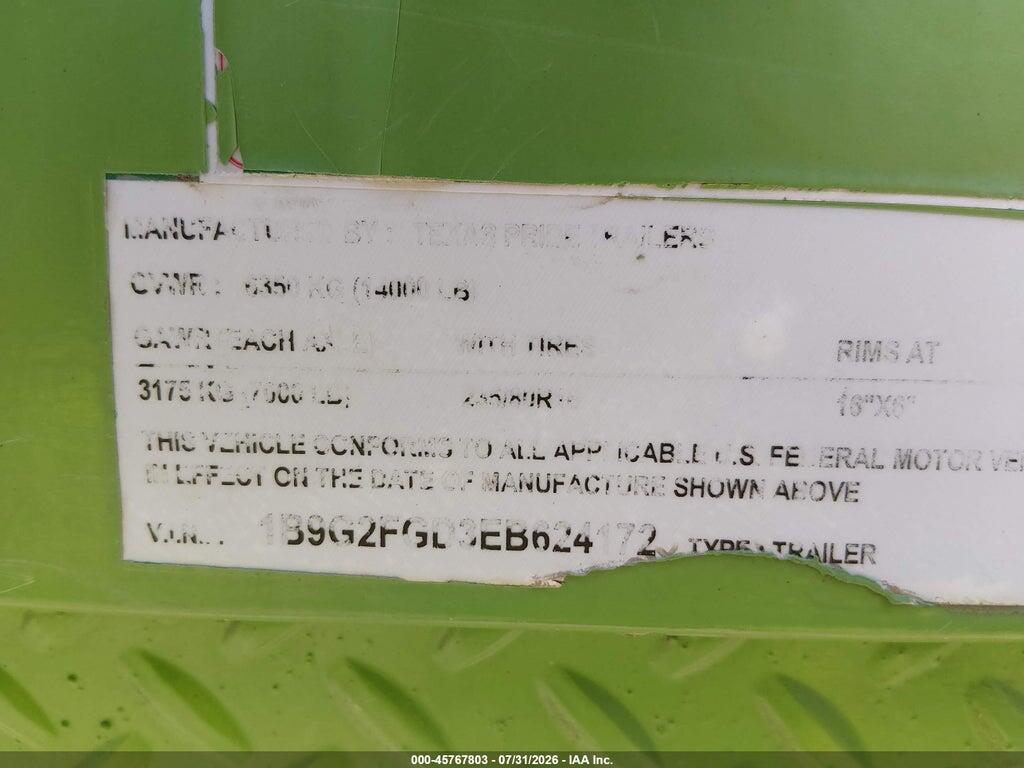 MANUFACTURED BY: TEXAS PRIDE TRAILERS
GVWR: 6350 KG (14000 LB)
GAWR (EACH AXLE) WITH TIRES RIMS AT
3175 KG (7000 LB) 235/80R16 16"X6"
THIS VEHICLE CONFORMS TO ALL APPLICABLE U.S. FEDERAL MOTOR VEH
IN EFFECT ON THE DATE OF MANUFACTURE SHOWN ABOVE
V.I.N.: 1B9G2FGD3EB624172 TYPE: TRAILER
000-45767803 - 07/31/2026 - IAA Inc.